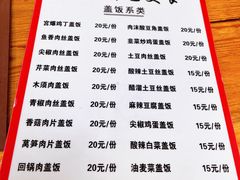 盖饭系类
宫爆鸡丁盖饭 20元/份 肉沫酸豆角盖饭 20元/份
鱼香肉丝盖饭 20元/份 韭菜炒鸡蛋盖饭 20元/份
尖椒肉丝盖饭 20元/份 土豆肉丝盖饭 20元/份
芹菜肉丝盖饭 20元/份 酸辣土豆丝盖饭 15元/份
木须肉盖饭 20元/份 醋溜土豆丝盖饭 15元/份
青椒肉丝盖饭 20元/份 麻辣豆腐盖饭 15元/份
香菇肉片盖饭 20元/份 尖椒鸡蛋盖饭 15元/份
莴笋肉片盖饭 20元/份 酸辣白菜盖饭 15元/份
回锅肉盖饭 20元/份 油麦菜盖饭 15元/份